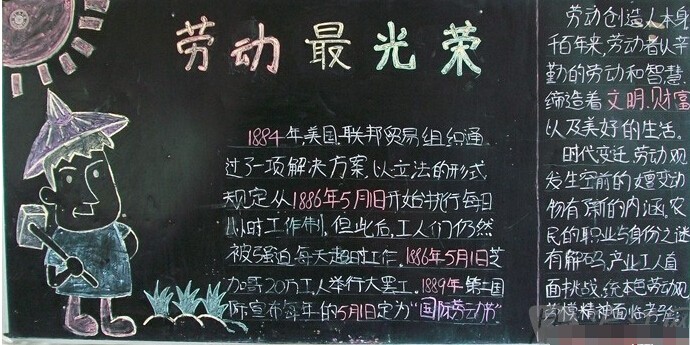 劳动最光荣
1884年,美国联邦贸易组织通
过了一项解决方案,以立法的形式
规定从1886年5月1日开始执行每日
八小时工作制,但此后,工人们仍然
被强迫每天超时工作.1886年5月1日芝
加哥20万工人举行大罢工.1889年第二国
际宣布每年的5月1日定为"国际劳动节"
劳动创造人本身
千百年来,劳动者以辛
勤的劳动和智慧,
缔造着文明.财富
以及美好的生活。
时代变迁,劳动观
发生空前的嬗变,劳动
物有了新的内涵,农
民的职业与身份之谜
有解码,产业工人直
面挑战,统本色劳动观
精神面临考验: